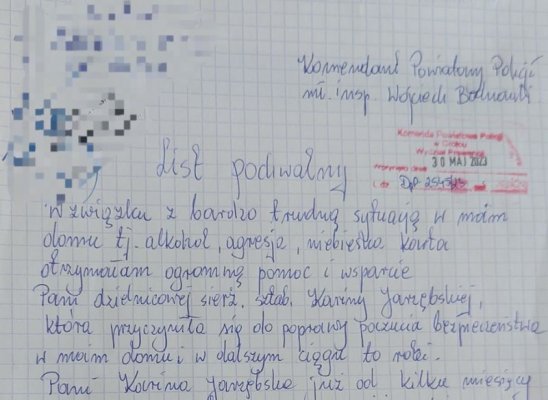 Komendant Powiatowy Policji
mł. insp. Wojciech
Komenda Powiatowa Policji
w Grójcu
Wydział Prewencji
30 MAJ 2023
List pochwalny
W związku z bardzo trudną sytuacją w moim
domu tj. alkohol, agresja, niebieska karta
otrzymałam ogromną pomoc i wsparcie
Pani dzielnicowej sierż. sztab. Kariny Jarzębskiej,
która przyczyniła się do poprawy poczucia bezpieczeństwa
w moim domu i w dalszym ciągu to robi.
Pani Karina Jarzębska już od kilku miesięcy